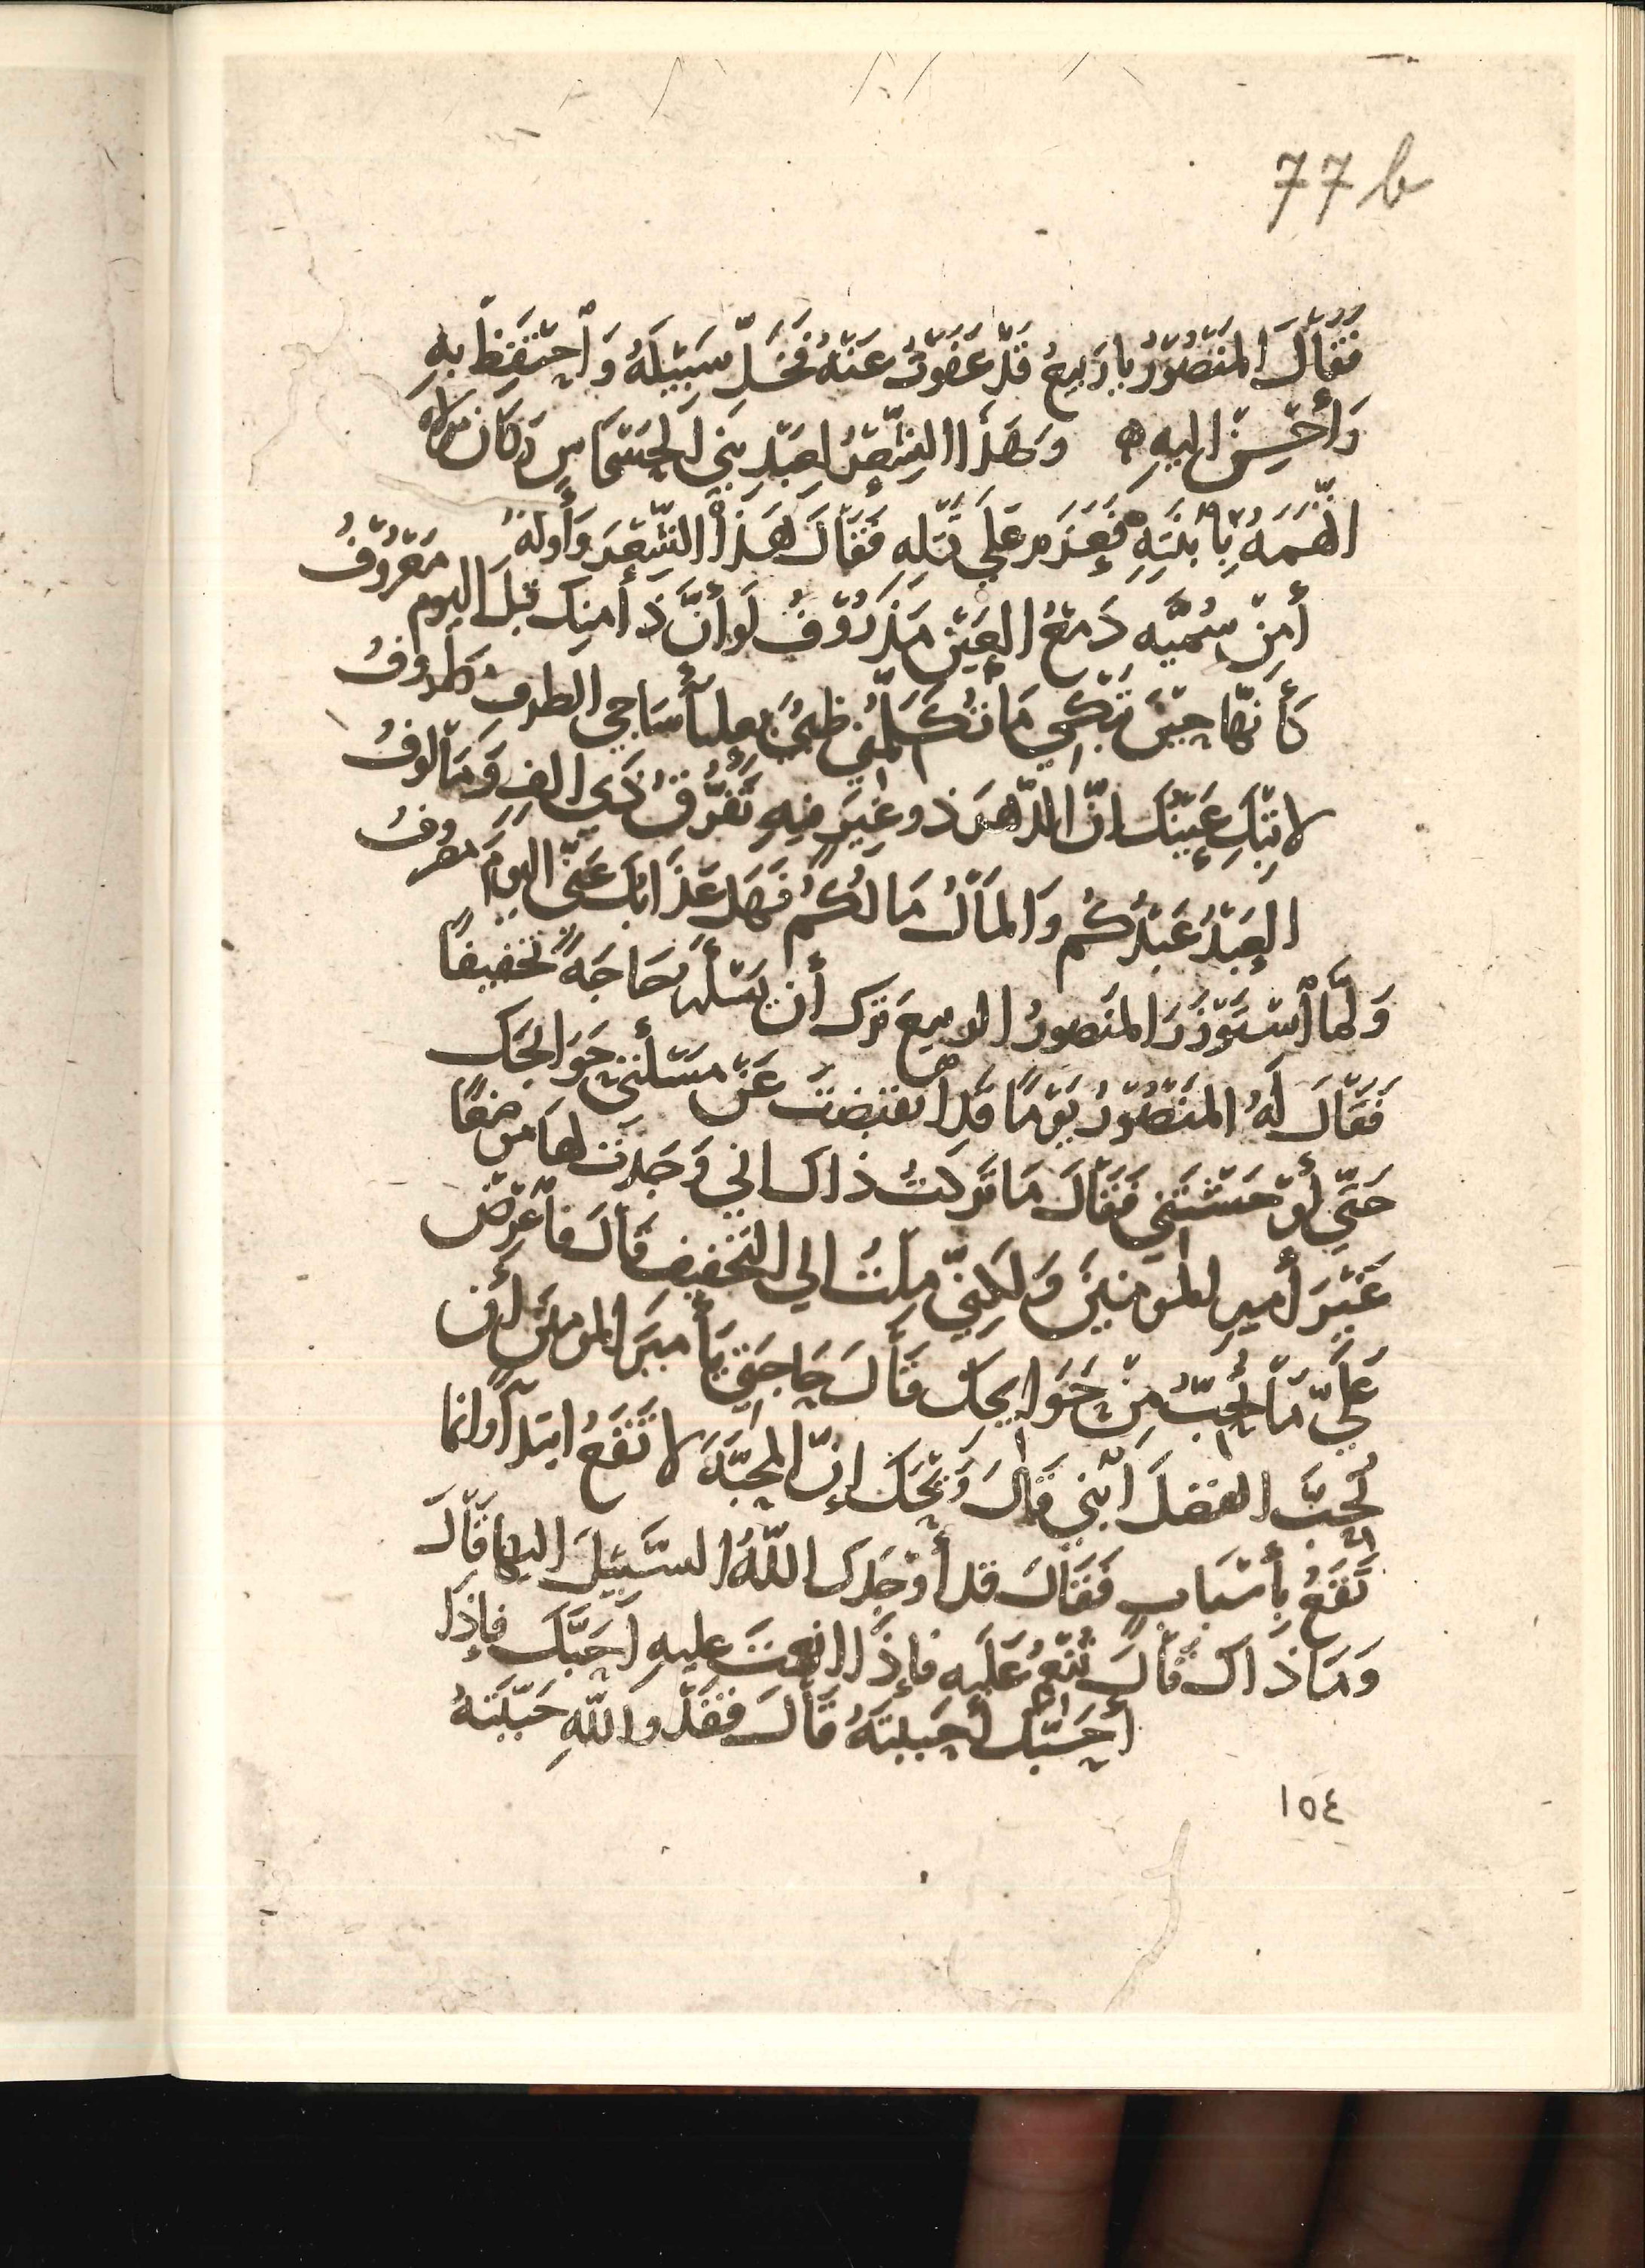 77 b
فَقَالَ المَنْصُوْرُ يا رَبِيعُ قَدْ عَفَوْتُ عَنْهُ فَخَلِّ سَبِيْلَهُ وَٱحْتَفِظْ بِهِ
وَأَحْسِنْ اليهِ ۞ وَهَذَا الشِّعْرُ لِعَبْدِ بَنِي الحَسْحَاسِ وَكَانَ مولاه
اتَّهَمَهُ بِٱبْنَتِهِ فَعَزَمَ عَلَى قَتْلِهِ فَقَالَ هَذَا الشِّعْرَ وَأَوله
أَمِنْ سُمَيَّه دَمْعُ العَيْنِ مَذْرُوْفُ لَو أَنَّ ذَا منك قبلَ اليوم مَعْرُوْفُ
كَأَنَّهَا حِيْنَ تَبْكِي مَا تُكَلِّمُنِي ظَبْيٌ بعليآ سَاجي الطرف مَطْرُوفُ
لا تَبْكِ عَيْنُكَ انّ الدَّهْرَ ذو غِيَرٍ فِيهِ تَفَرُّقُ ذي الفٍ وَمَألُوفُ
العَبْدُ عَبْدُكُمُ وَالمَالُ مَالُكُمُ فَهَل عَذَابُكَ عَنِّي اليومَ مصروفُ
وَلَمَّا ٱسْتَوْزَرَ المَنصورُ الربيعَ ترك أن يَسْألَه حَاجَةً تَخْفِيفًا
فَقَالَ لَهُ المَنْصُوْرُ يَوْمًا قَدِ ٱنقَبَضْتَ عَنْ مَسْألَتِي حَوَائِجَك
حَتَّى أَوْحَشْتَنِي فَقَالَ مَا تَرَكْتُ ذاك اني وَجَدْتُ لها مَوْضِعًا
غَيْرَ أميرِ المومنِيْنَ وَلَكِنِّي مِلتُ الي التَخْفِيفِ قَالَ فَٱعْرِضْ
عَلَيَّ مَا تُحِبُّ مِنْ حَوَايجكَ قَالَ حَاجَتِي يَأميرَ المومنينَ أن
تُحِبَّ الفضلَ ٱبْنِي قَالَ وَيْحَكَ إنّ المَحَبَّةَ لا تَقَعُ ابتدآ وانما
تَقَعُ بِأسْبَابٍ فَقَالَ قد أَوْجَدَك اللّهُ السَّبِيْلَ اليها قَالَ
وَمَا ذَاكَ قَالَ تُنْعِمُ عَلَيْهِ فإذَا انعمتَ عليهِ أَحَبَّكَ فإذَا
أَحَبَّكَ أَحْبَبْتَهُ قَالَ فَقَدْ وَاللهِ حَبَّبْتَهُ
١٥٤